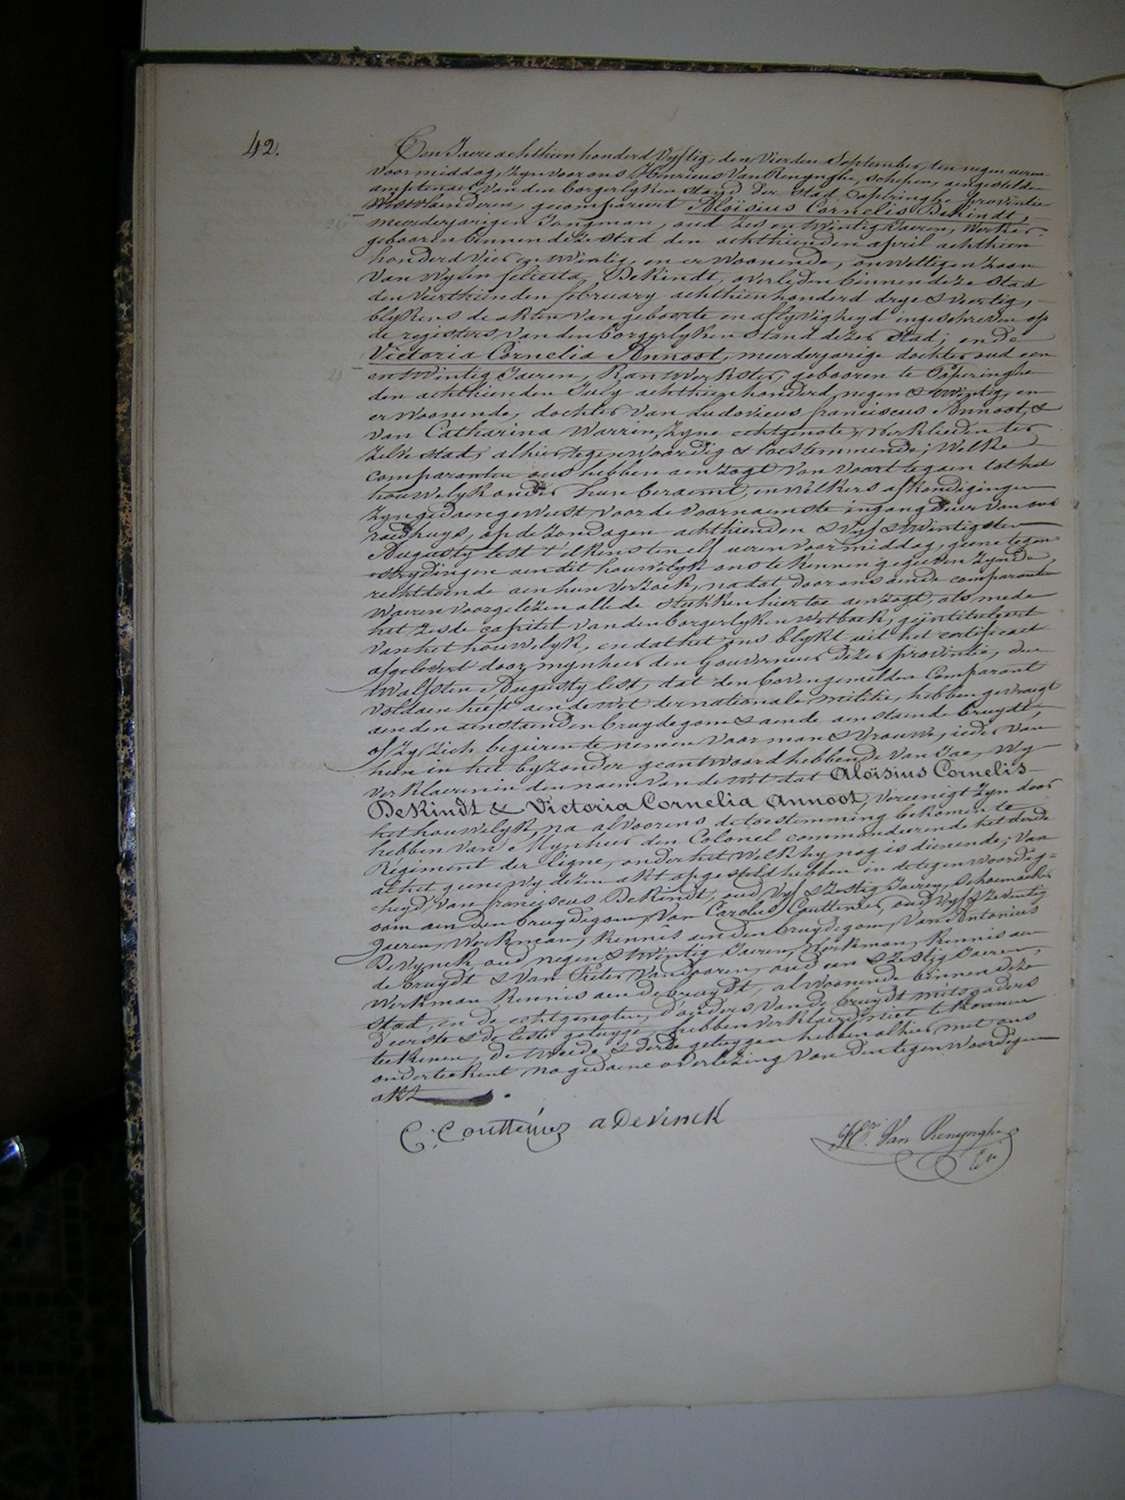 42.
Een Jaere achthien honderd vyftig, den vierden September, ten negen uren
voor middag, zyn voor ons Henricus Van Renynghe, schepen, aengestelde
amptenaer van den borgerlyken stand der stad Poperinghe provintie
Westvlaenderen, gecompareert Aloïsius Cornelis DeKindt,
meerderjarigen Jongman, oud zes en twintig Jaeren, werker,
gebooren binnen deze stad den achthienden april achthien
honderd vier en twintig, en er woonende, onwettigen zoon
van wylen felicita DeKindt, overleden binnen deze stad
den veerthienden february achthien honderd drye & veertig,
blykens de akten van geboorte en aflyvigheyd ingeschreven op
de registers van den borgerlyken stand dezer stad; en de
Victoria Cornelia Annoot, meerderjarige dochter oud een
en twintig Jaeren, Kantwerkster, gebooren te Poperinghe
den achthienden July achthien honderd negen & twintig, en
er woonende, dochter van Ludovicus franciscus Annoot, &
van Catharina Warrin, zyne echtgenote, werklieden ter
zelve stad, alhier tegenwoordig & toestemmende; Welke
comparanten ons hebben aenzogt van voort te gaen tot het
houwelyk onder hun beraemt, en welkers afkondigingen
zyn gedaen geweest voor de voornaemste ingang deur van ons
raedhuys, op de zondagen achthienden & vyf & twintigsten
Augusty lest t'elkens ten elf uren voor middag, geene tegen
strydingen aen dit houwelyk ons te kennen gegeeven zynde,
rechtdoende aen hun verzoek, na dat door ons aende comparanten
waeren voorgelezen alle de stukken hier toe aenzogt, als mede
het zesde capitel van den borgerlyken wetboek, geïntituleert
van het houwelyk, en dat het ons blykt uit het certificaet
afgelevert door mynheer den Gouverneur dezer provintie, den
twalfsten Augusty lest, dat den bovengemelden Comparant
voldaen heeft aen de wet der nationale militie, hebben gevraegt
aen den aenstaenden bruydegom & aende aenstaende bruydt,
of zy zich begeiren te nemen voor man & vrouw, ieder van
hun in het byzonder geantwoord hebbende van Jae, Wy
verklaeren in den naem van de wet dat Aloïsius Cornelis
DeKindt & Victoria Cornelia Annoot, vereenigt zyn door
het houwelyk, na alvoorens de toestemming bekomen te
hebben van Mynheer den Colonel commandeerende het derde
Régiment der ligne, onder het welk hy nog is dienende; van
al het geene wy dezen akt opgesteld hebben in de tegenwoordig=
heyd van franciscus DeKindt, oud vyf & zestig Jaeren, schoenmaeker
oom aen den bruydegom, van Carolus Couttenier, oud vyf & zeventig
Jaeren, werkman, kennis aen den bruydegom, van Antonius
DeVynck oud negen & twintig Jaeren, werkman, kennis aen
de bruydt & van Pieter Vandooren, oud een & zestig Jaeren,
werkman kennis aen de bruydt, al woonende binnen deze
stad, en de echtgenoten, d'ouders van de bruydt mitsgaders
d'eerste & de leste getuyge hebben verklaerd niet te konnen
teekenen, de tweede & derde getuygen hebben alhier met ons
onderteekent na gedaene overlezing van den tegenwoordigen
akt.
C: Couttenier a DeVinck
Hri. Van Renynghe